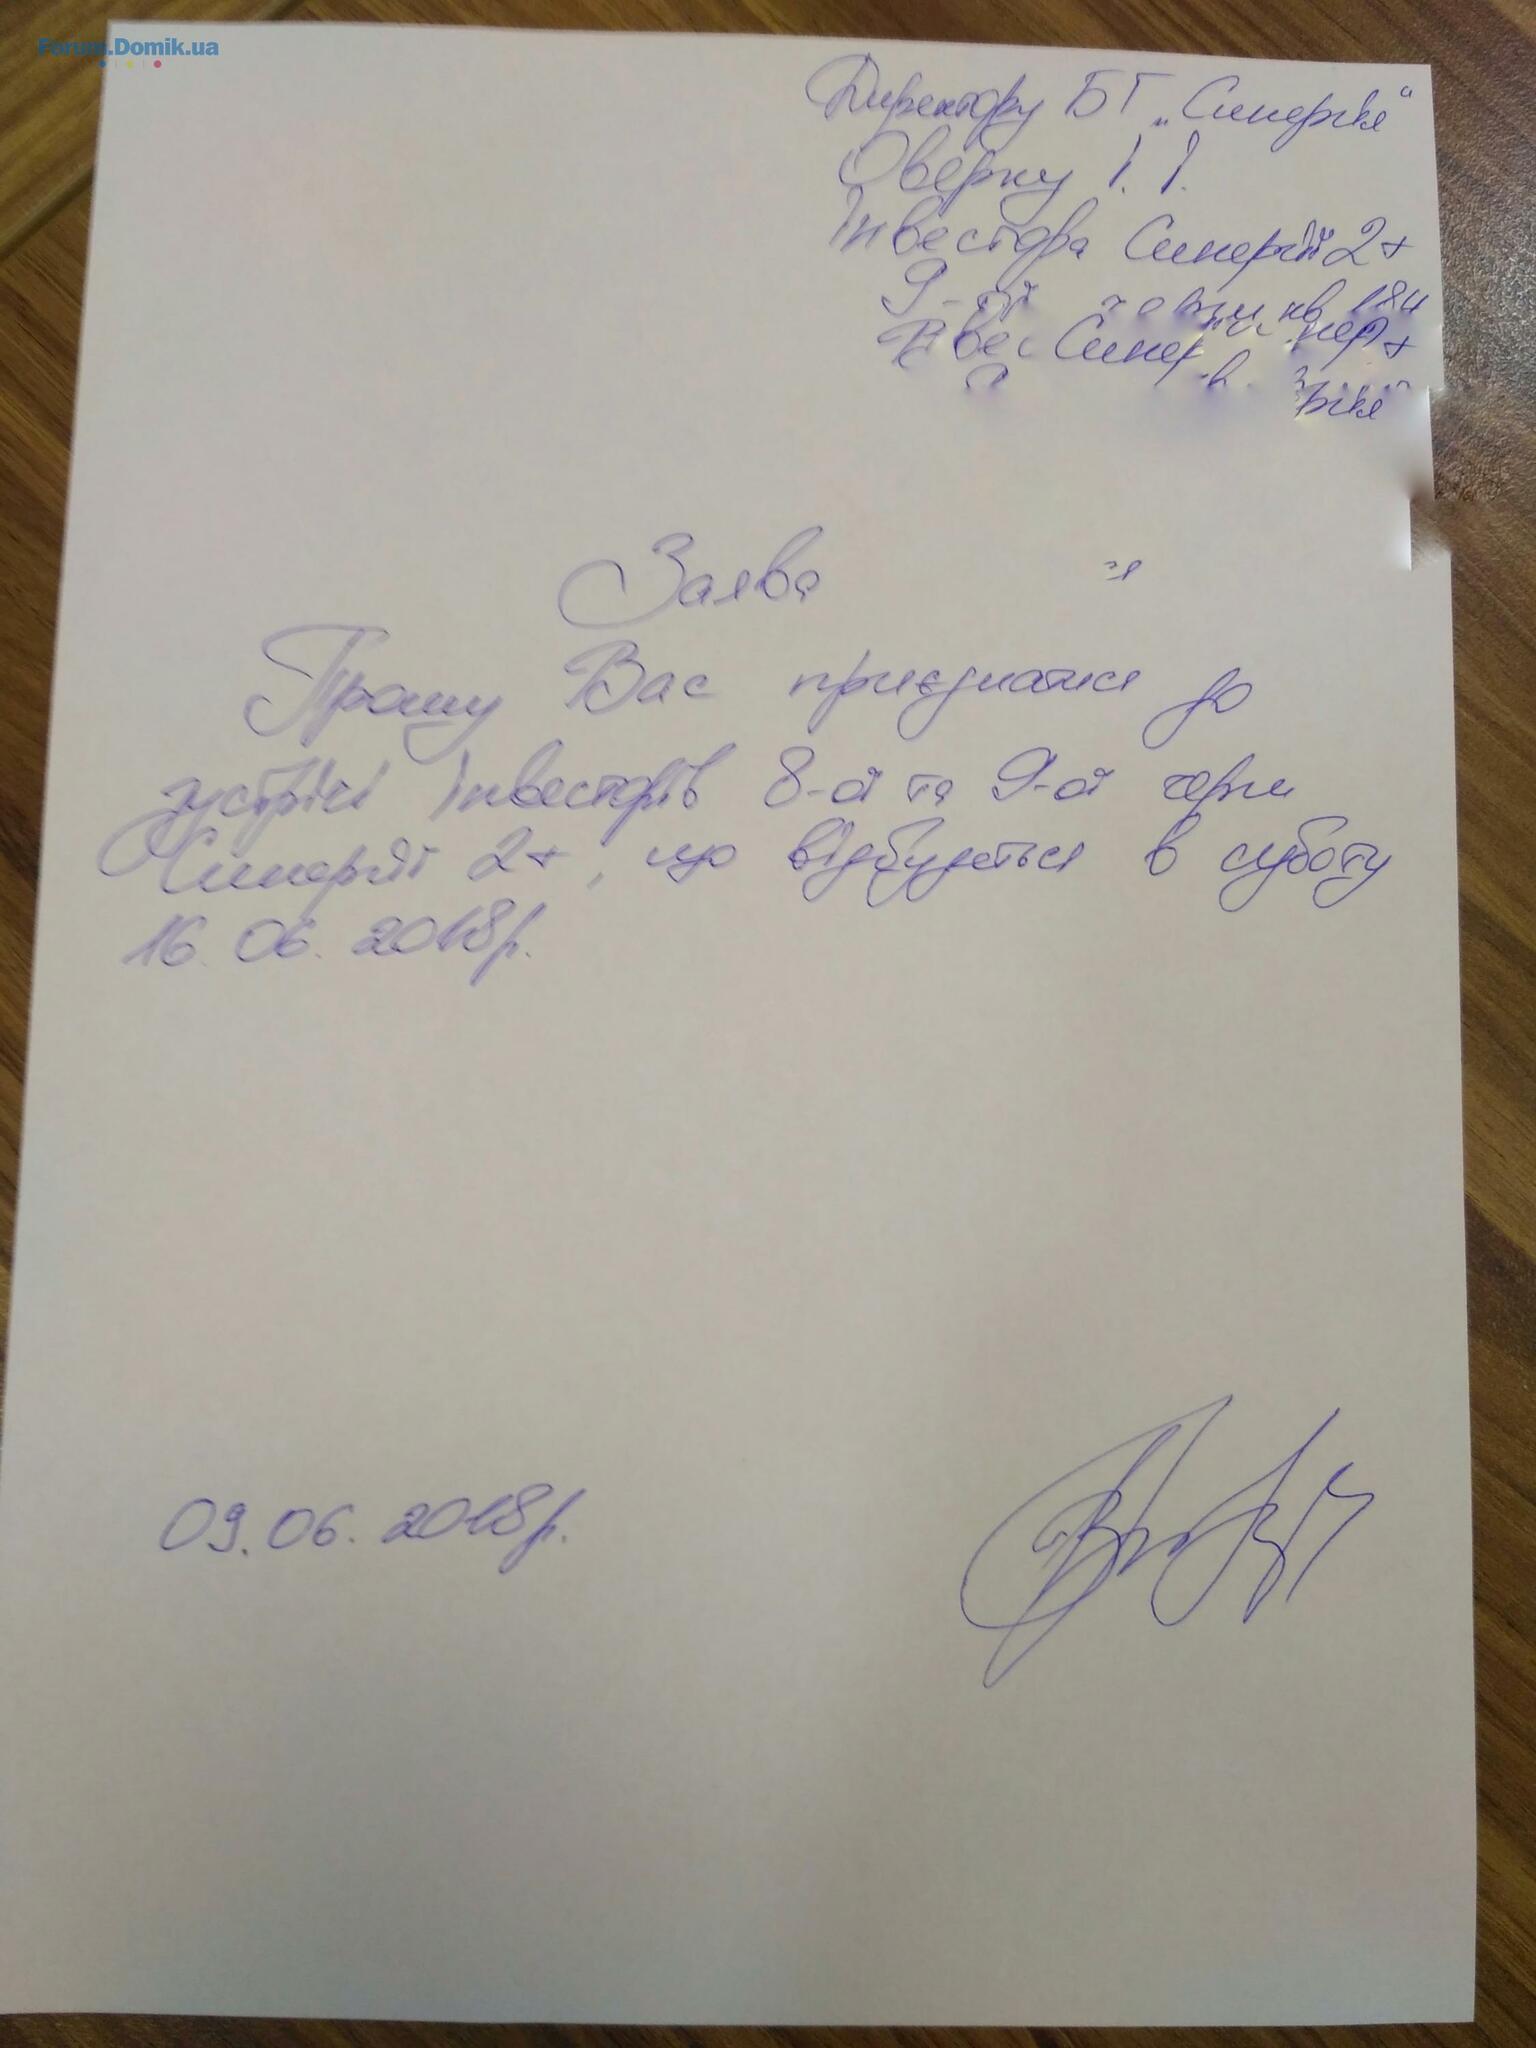 Forum.Domik.ua
Директору БГ „Синергія"
Оверку І. І.
Інвестора Синергії 2+
9-ої кв
Синер
Заява
Прошу Вас приєднатися до
зустрічі інвесторів 8-ої та 9-ої черги
Синергії 2+, що відбудеться в суботу
16.06.2018р.
09.06.2018р.